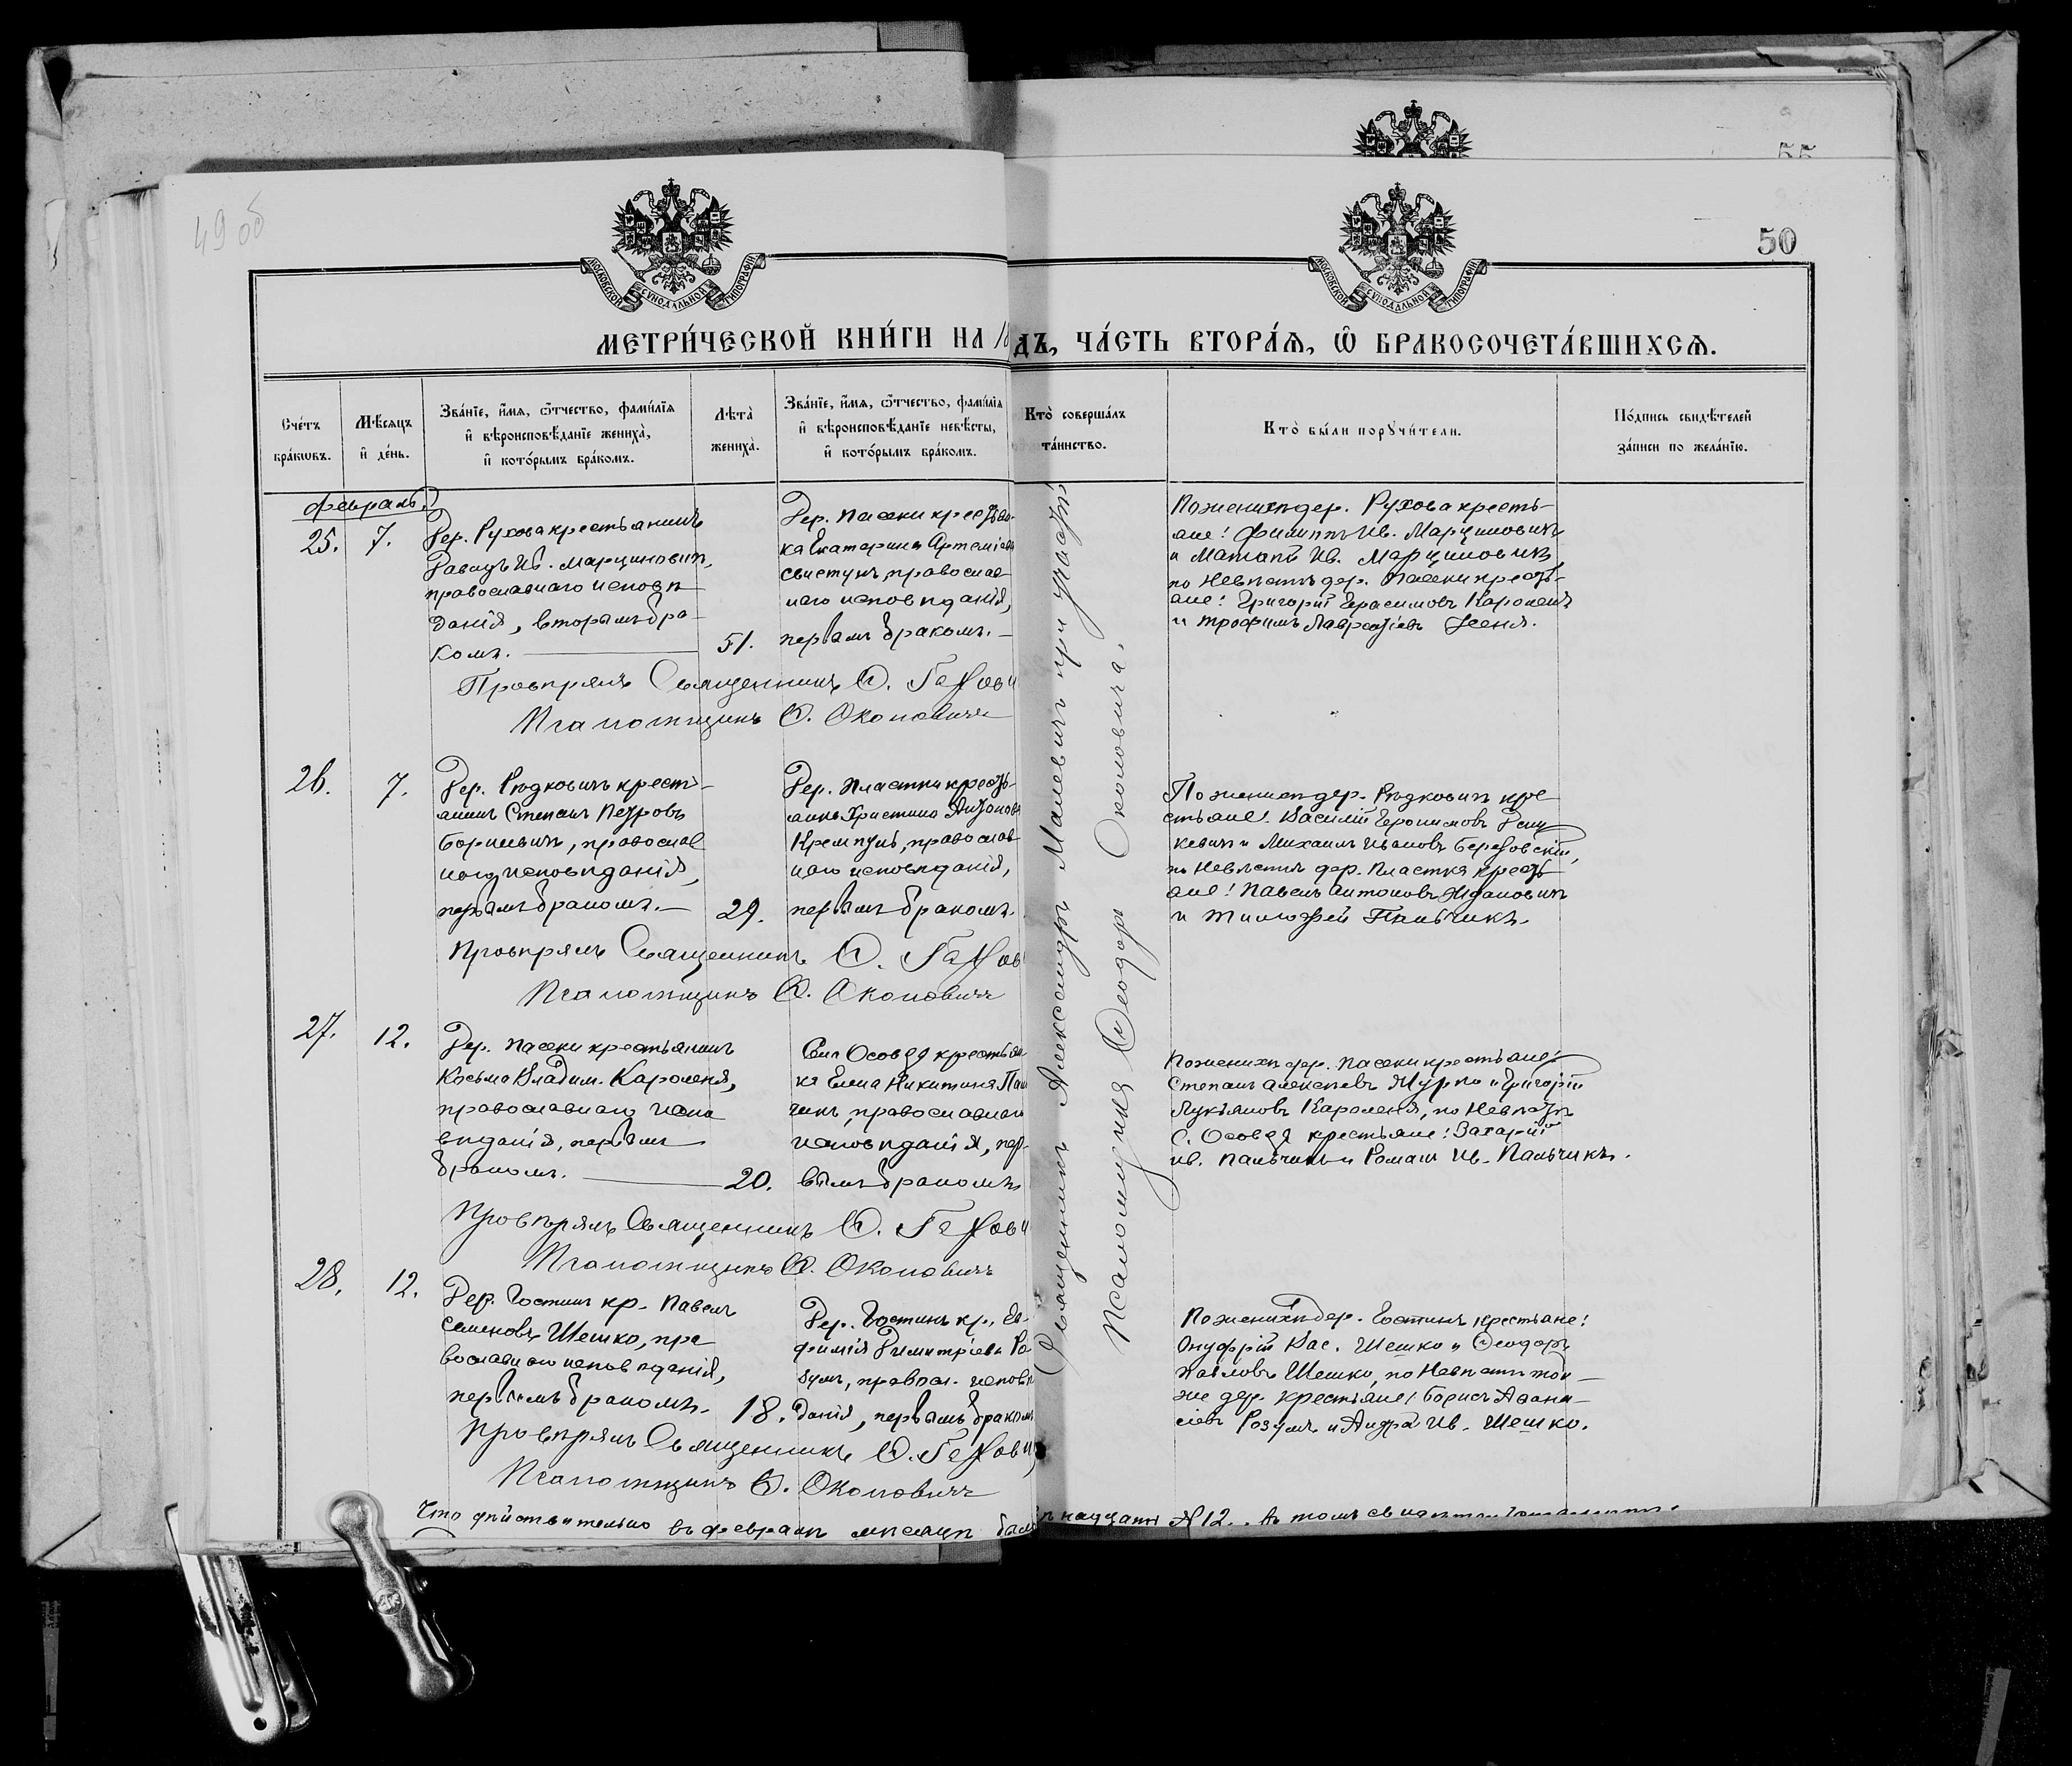 49 об
55
50
МОСКОВСКОЙ СУНОДАЛЬНОЙ ТИПОГРАФІИ
МОСКОВСКОЙ СУНОДАЛЬНОЙ ТИПОГРАФІИ
МЕТРИ́ЧЕСКОЙ КНИ́ГИ НА 18
ДЪ, ЧА́СТЬ ВТОРА́Я, Ѿ БРАКОСОЧЕТА́ВШИХСѦ.
Сче́тъ бра́кѡвъ.
Мѣ́сяцъ и҆ де́нь.
Зва́нїе, и҆́мя, ѻ҆́тчество, фами́лїя
и҆ вѣроисповѣ́данїе жениха̀,
и҆ кото́рымъ бра́комъ.
Лѣ́та жениха̀.
Зва́нїе, и҆́мя, ѻ҆́тчество, фами́лїя
и҆ вѣроисповѣ́данїе невѣ́сты,
и҆ кото́рымъ бра́комъ.
Кто̀ соверша́лъ
та́инство.
Кто̀ бы́ли порꙋчи́тели.
По́дпись свидѣ́телей
за́писи по жела́нїю.
Февраль.
25.
7.
Дер. Рухова крестьянинъ
Давидъ Ив. Марциновичъ,
православнаго исповѣ
данія, вторымъ бра-
комъ.
51.
Дер. Пасеки крестьян-
ка Екатерина Артеміева
Свистунъ, православ
наго исповѣданія,
первымъ бракомъ.
По женихѣ дер. Рухова кресть-
яне: Филиппъ Ив. Марциновичъ
и Матвѣй Ив. Марциновичъ
по Невѣстѣ дер. Пасеки кресть-
яне: Григорій Герасимовъ Кароленя
и Трофимъ Лаврентіевъ
Провѣрялъ Священникъ
Псаломщикъ Ѳ. Околовичъ
26.
7.
Дер. Рѣдковичъ кресть-
янинъ Степанъ Петровъ
православ
наго исповѣданія,
первымъ бракомъ.
29.
Дер. Пластки кресть-
янка Христина Антонова
Кремпуль, православ
наго исповѣданія,
первымъ бракомъ.
По женихѣ дер. Рѣдковичъ кре
стьяне: Василій Героимовъ
и Михаилъ Ивановъ Березовскій,
по Невѣстѣ дер. Пластка кресть
яне: Павелъ Антоновъ Ждановичъ
и Тимофей Пальчикъ.
Провѣрялъ Священникъ
Псаломщикъ Ѳ. Околовичъ
27.
12.
Дер. Пасеки крестьянинъ
Косьма Владим. Кароленя,
православнаго испо
вѣданія, первымъ
бракомъ.
20.
Села Осовца крестьян
ка Елена Никитина Паль
чикъ, православнаго
исповѣданія, пер-
вымъ бракомъ
По женихѣ дер. Пасеки крестьяне:
Степанъ Алексѣевъ Журко и Григорій
Лукьяновъ Кароленя, по Невѣстѣ
С. Осовца крестьяне: Захарій
Ив. Пальчикъ и Романъ Ив. Пальчикъ.
Провѣрялъ Священникъ
Псаломщикъ Ѳ. Околовичъ
28.
12.
Дер. Гостинъ кр. Павелъ
Семеновъ Шешко, пра
вославнаго исповѣданія,
первымъ бракомъ.
18.
Дер. Гостинъ кр., Ев-
фимія Димитріева Ро-
зумъ, правосл. исповѣ
данія, первымъ бракомъ
По женихѣ дер. Гостинъ крестьяне:
Онуфрій Вас. Шешко и Ѳеодоръ
Павловъ Шешко, по Невѣстѣ той-
же дер. крестьяне: Борисъ Аѳана-
сіевъ Розумъ и Андрей Ив. Шешко.
Провѣрялъ Священникъ
Псаломщикъ Ѳ. Околовичъ
Священникъ Александръ Малевичъ при участіи
Псаломщика Ѳеодора Околовича.
Что дѣйствительно въ февралѣ мѣсяцѣ
№ 12. Въ томъ